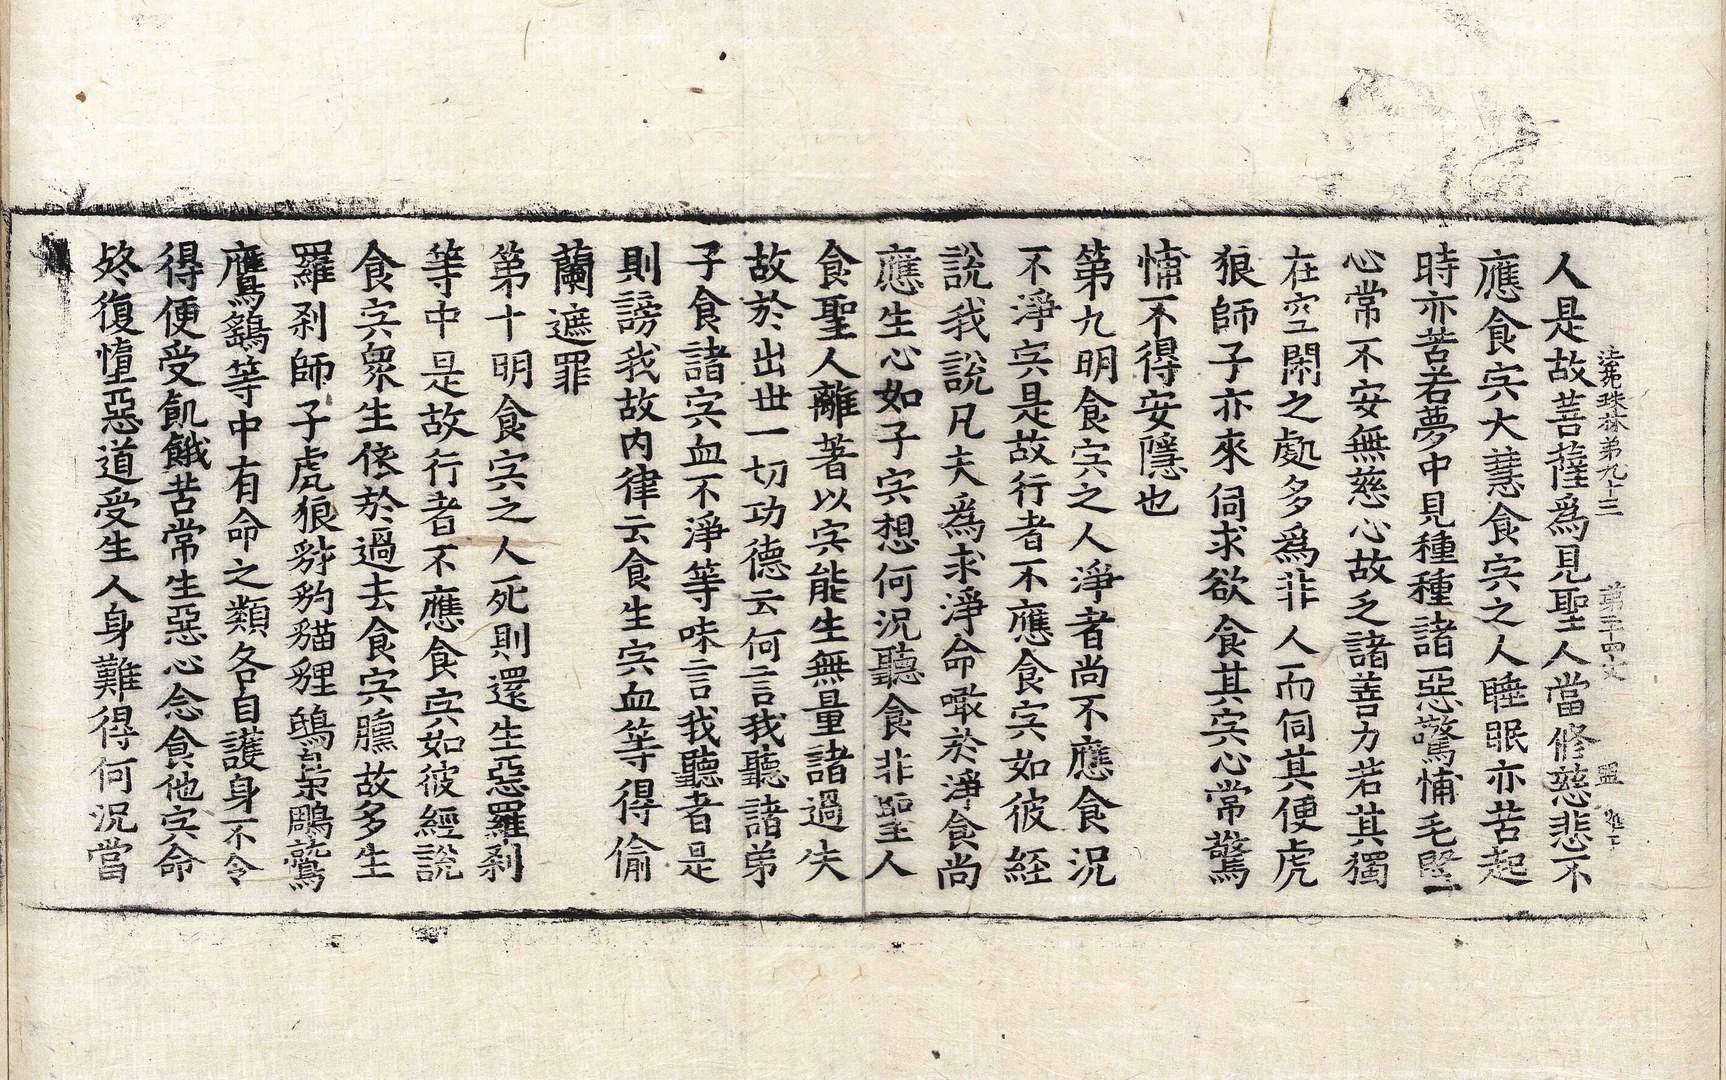 法苑珠林第九十三 第二十四丈 盟
人是故菩薩為見聖人當修慈悲不
應食宍大慧食宍之人睡眠亦苦起
時亦苦若夢中見種種諸惡驚怖毛竪
心常不安無慈心故乏諸善力若其獨
在空閑之處多為非人而伺其便虎
狼師子亦來伺求欲食其宍心常驚
怖不得安隱也
第九明食宍之人淨者尚不應食況
不淨宍是故行者不應食宍如彼經
說我說凡夫為求淨命噉於淨食尚
應生心如子宍想何況聽食非聖人
食聖人離著以宍能生無量諸過失
故於出世一切功德云何言我聽諸弟
子食諸宍血不淨等味言我聽者是
則謗我故內律云食生宍血等得偷
蘭遮罪
第十明食宍之人死則還生惡羅剎
等中是故行者不應食宍如彼經說
食宍衆生依於過去食宍臛故多生
羅剎師子虎狼豺豹猫狸鵄梟鵰鷲
鷹鷂等中有命之類各自護身不令
得便受飢餓苦常生惡心念食他宍命
終復墮惡道受生人身難得何況當